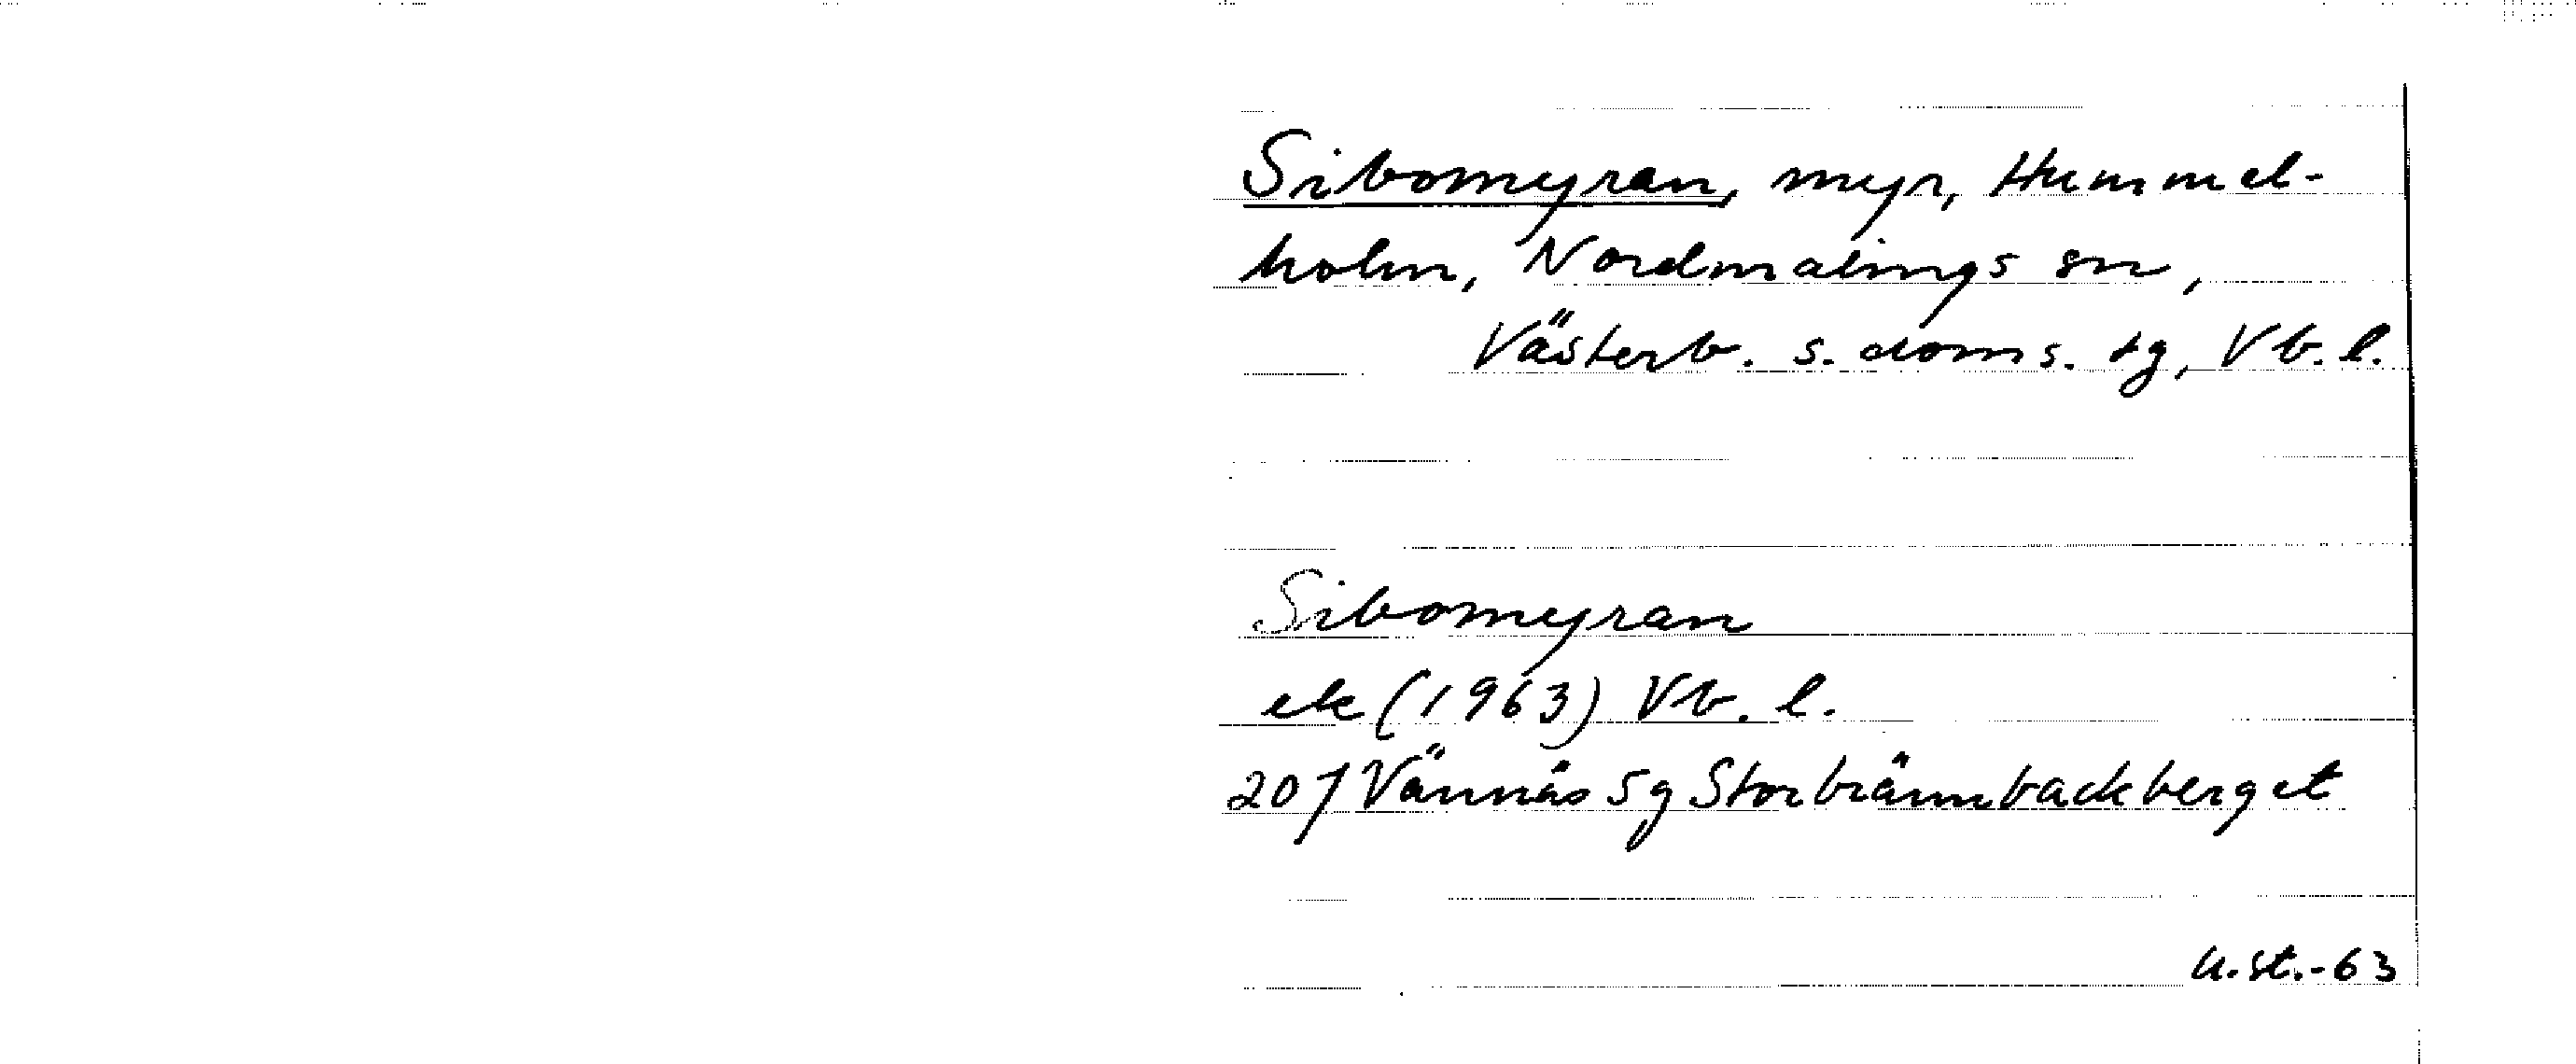 Sibomyran, myr, Hummel-
holm, Nordmalings sn,
Västerb. s. doms. tg, Vb. l.
Sibomyran
ek (1963) Vb. l.
20J Vännäs 5g Storbrännbackberget
U.St.-63